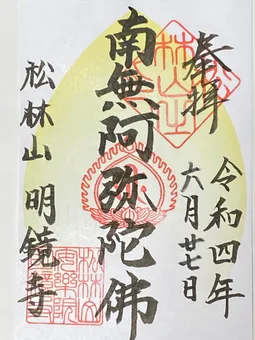 奉拝
令和四年
六月廿七日
南無阿弥陀佛
松林山 明鏡寺